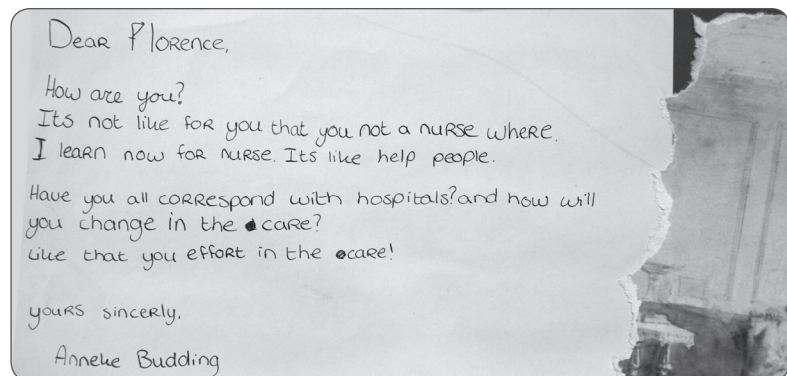 Dear Florence,
How are you?
Its not like for you that you not a nurse where.
I learn now for nurse. Its like help people.
Have you all correspond with hospitals? and how will
you change in the care?
Like that you effort in the care!
yours sincerly,
Anneke Budding